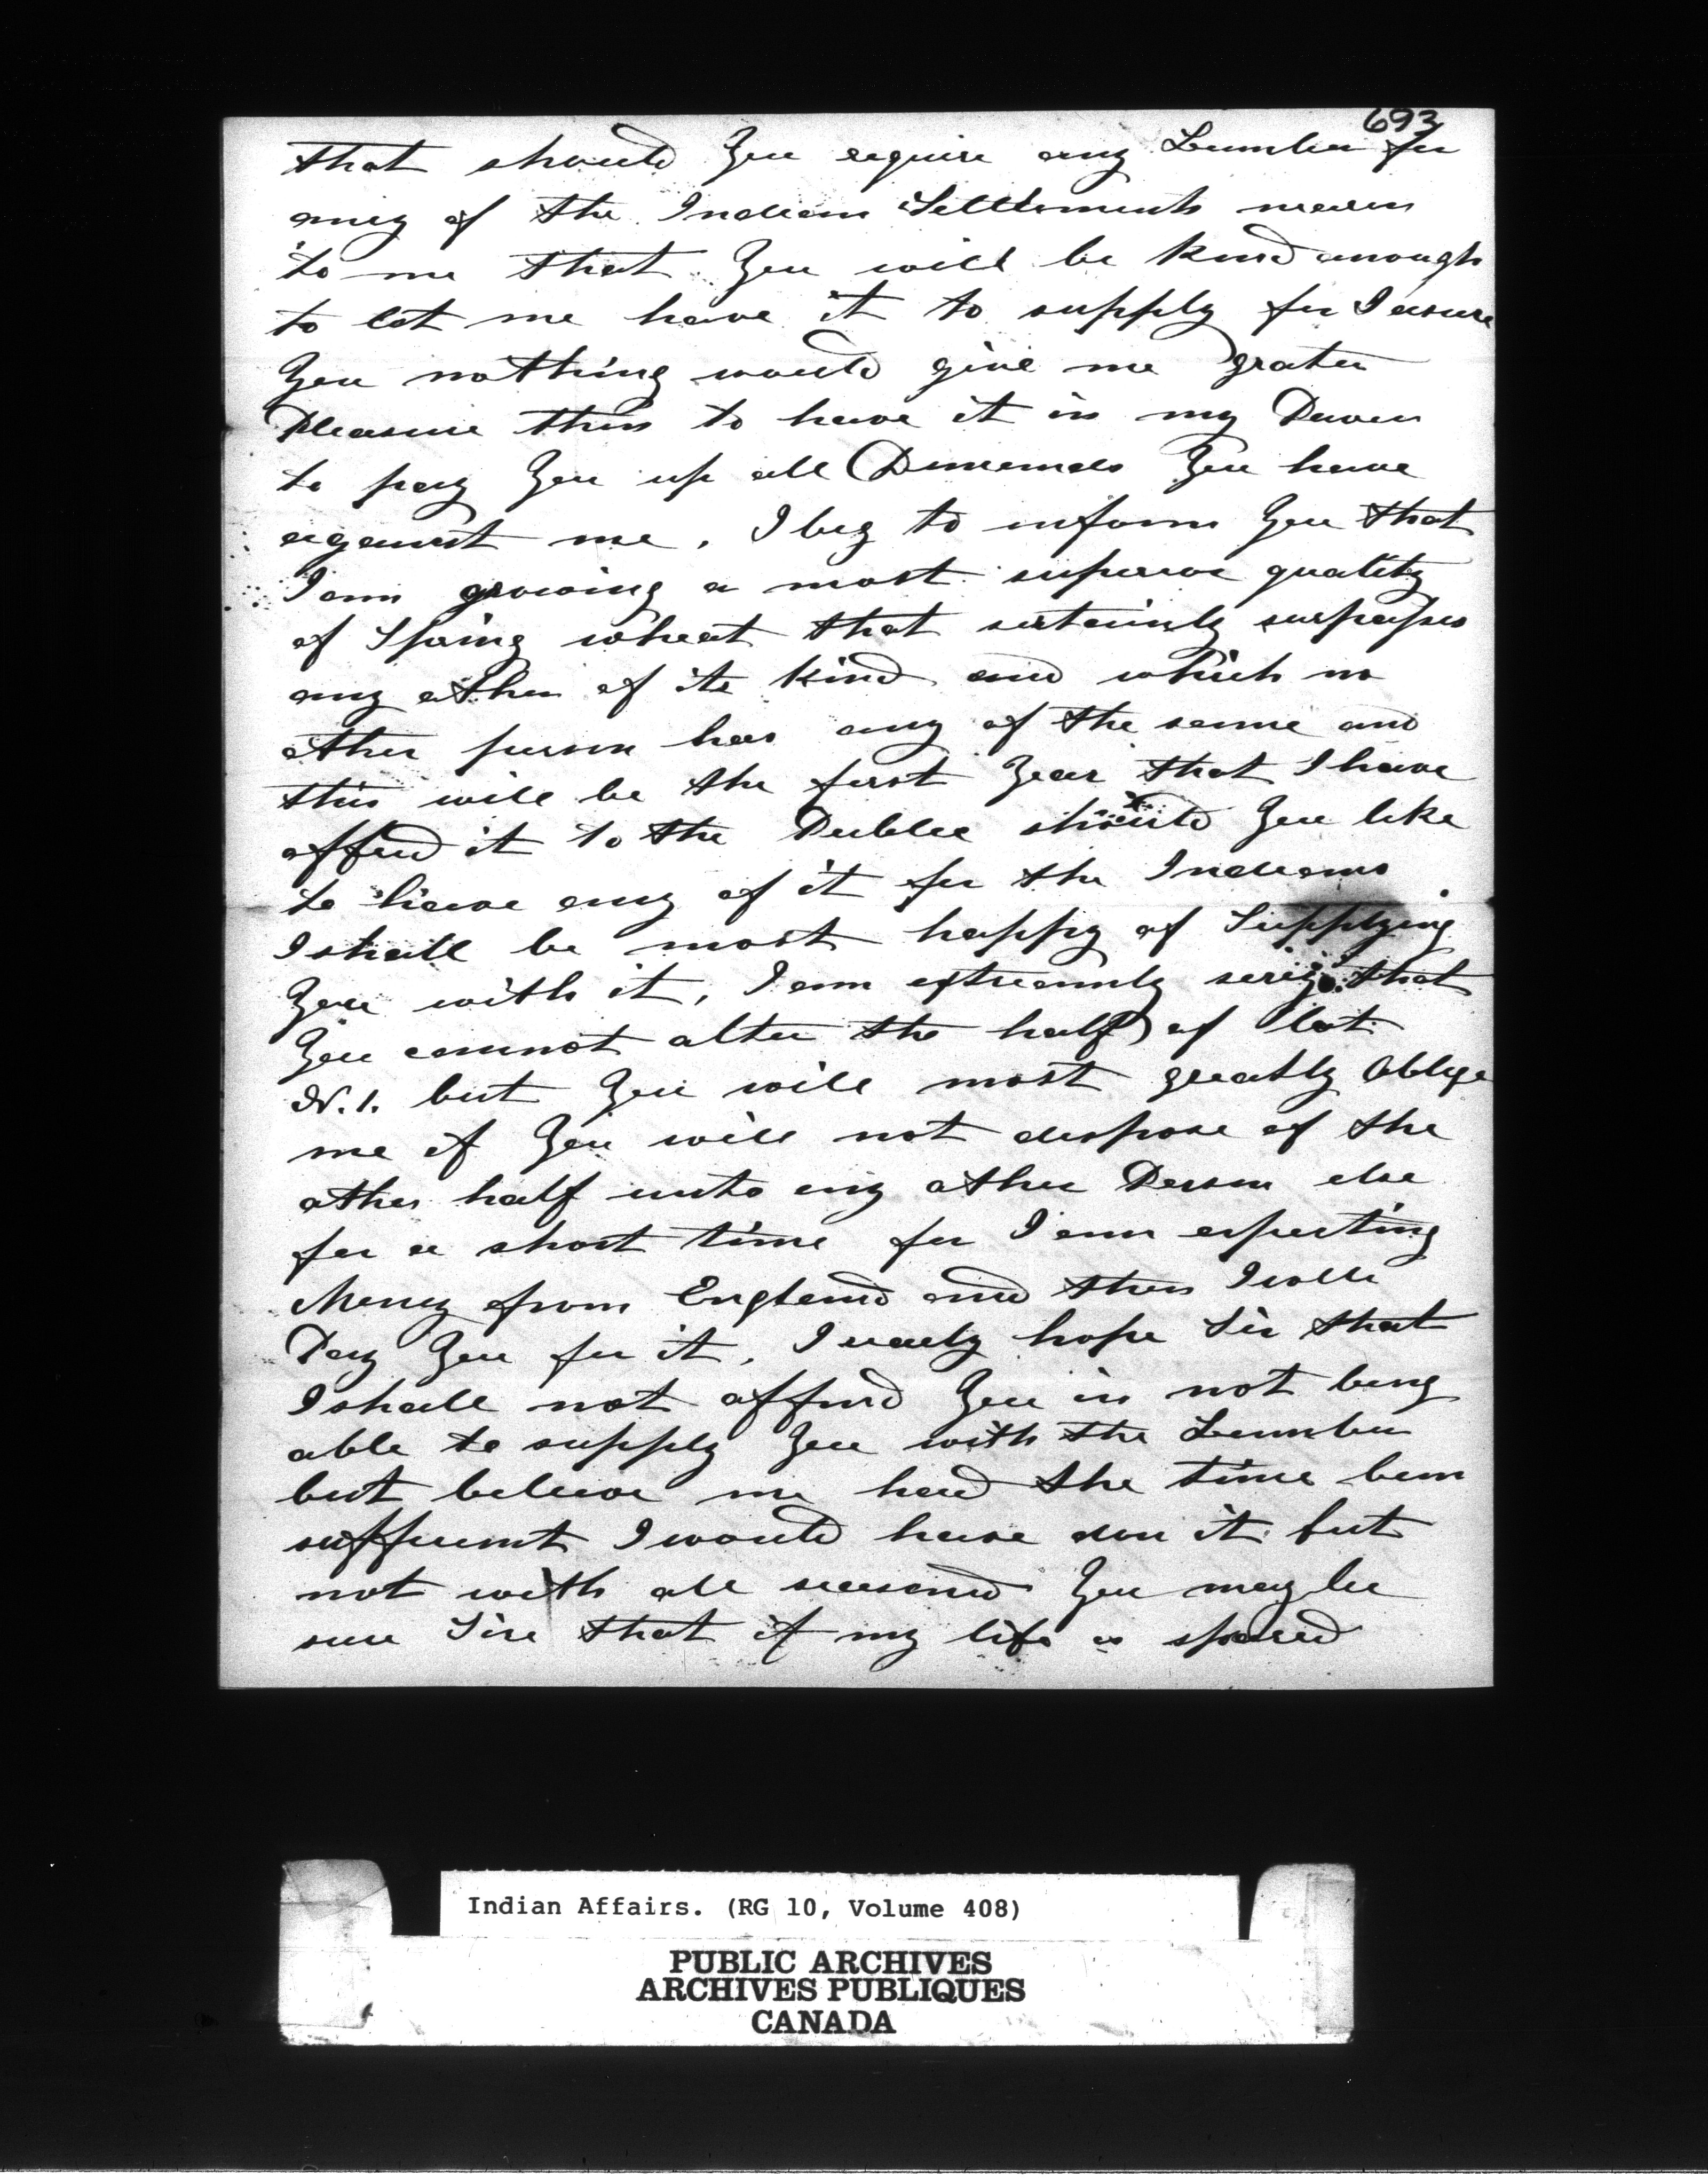 693
that should You require any Lumber for
any of the Indian Settlements nearer
to me that You will be kind anough
to let me have it to supply for I asure
You nothing would give me grater
Pleasure then to have it in my Power
to pay You up all Demands You have
against me, I beg to inform You that
I am growing a most superior quality
of Spring wheat that sertainly surpasses
any other of its kind and which no
other person has any of the same and
this will be the first Year that I have
offerd it to the Publec should You like
to have any of it for the Indians
I shall be most happy of Supplying
You with it, I am extreamly sory that
You cannot alter the half of lot
N. 1. but You will most greatly Oblige
me if You will not dispose of the
other half unto any other Person else
for a short time for I am expecting
Money from England and then I will
Pay You for it, I realy hope Sir that
I shall not affend You in not being
able to supply You with the Lumber
but beleive me had the time been
suffecient I would have don it but
not with all seasoned You may be
sure Sire that if my life is spared
Indian Affairs. (RG 10, Volume 408)
PUBLIC ARCHIVES
ARCHIVES PUBLIQUES
CANADA